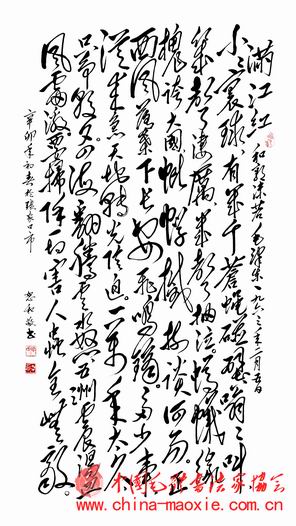 满江红 和郭沫若 毛泽东一九六三年一月五日
小〻寰球有几个苍蝇碰壁嗡〻叫
几声凄厉几声抽泣蚂蚁缘
槐夸大国蚍蜉撼树谈何易正
西风落叶下长安飞鸣镝多少事
从来急天地转光阴迫一万年太久
只争朝夕四海翻腾云水怒五洲震荡
风雷激要扫除一切害人虫全无敌
辛卯年初春於张家口市
中国毛体书法家协会
www.china-maoxie.com.cn